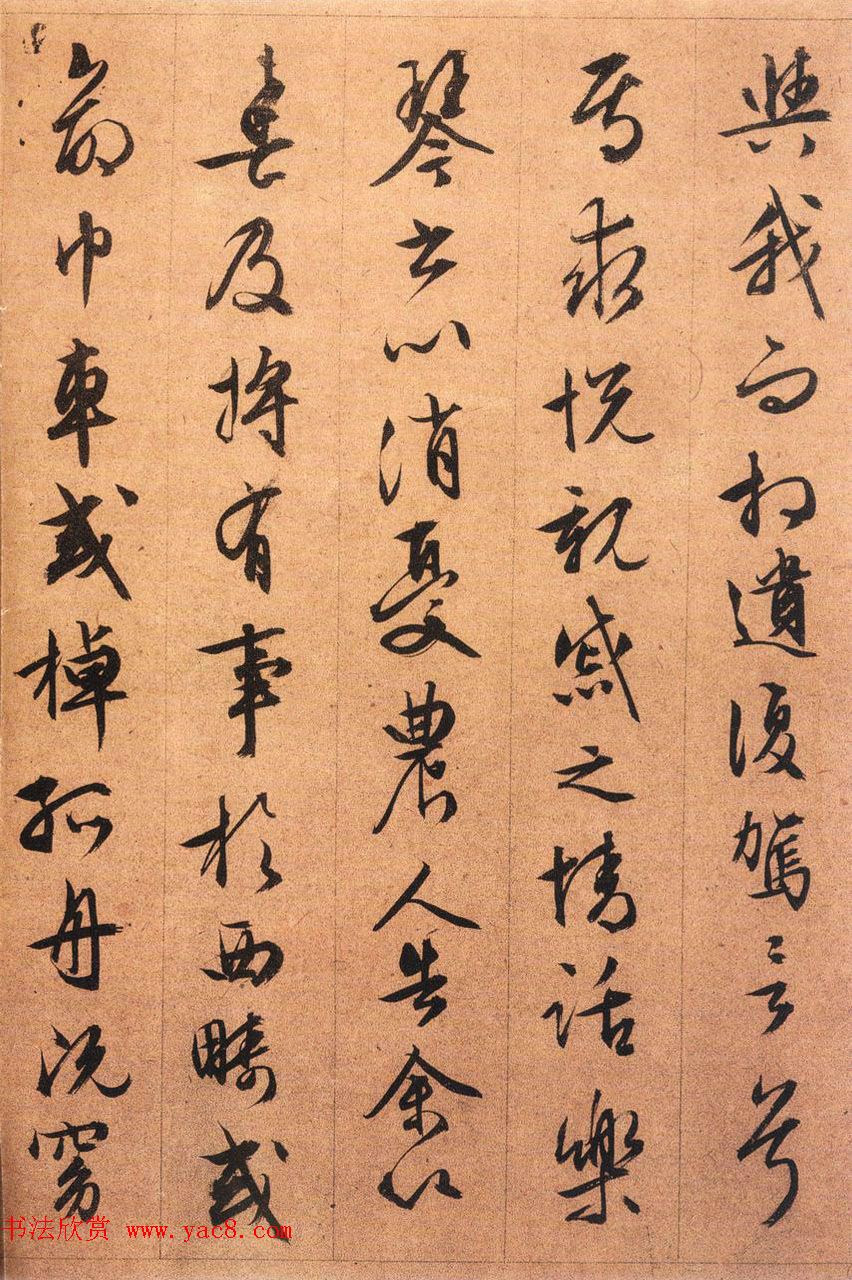 與我而相遺復駕言兮
焉求悦親戚之情話樂
琴書以消憂農人告余以
春及将有事於西疇或
命巾車或棹孤舟既窈
书法欣赏 www.yac8.com